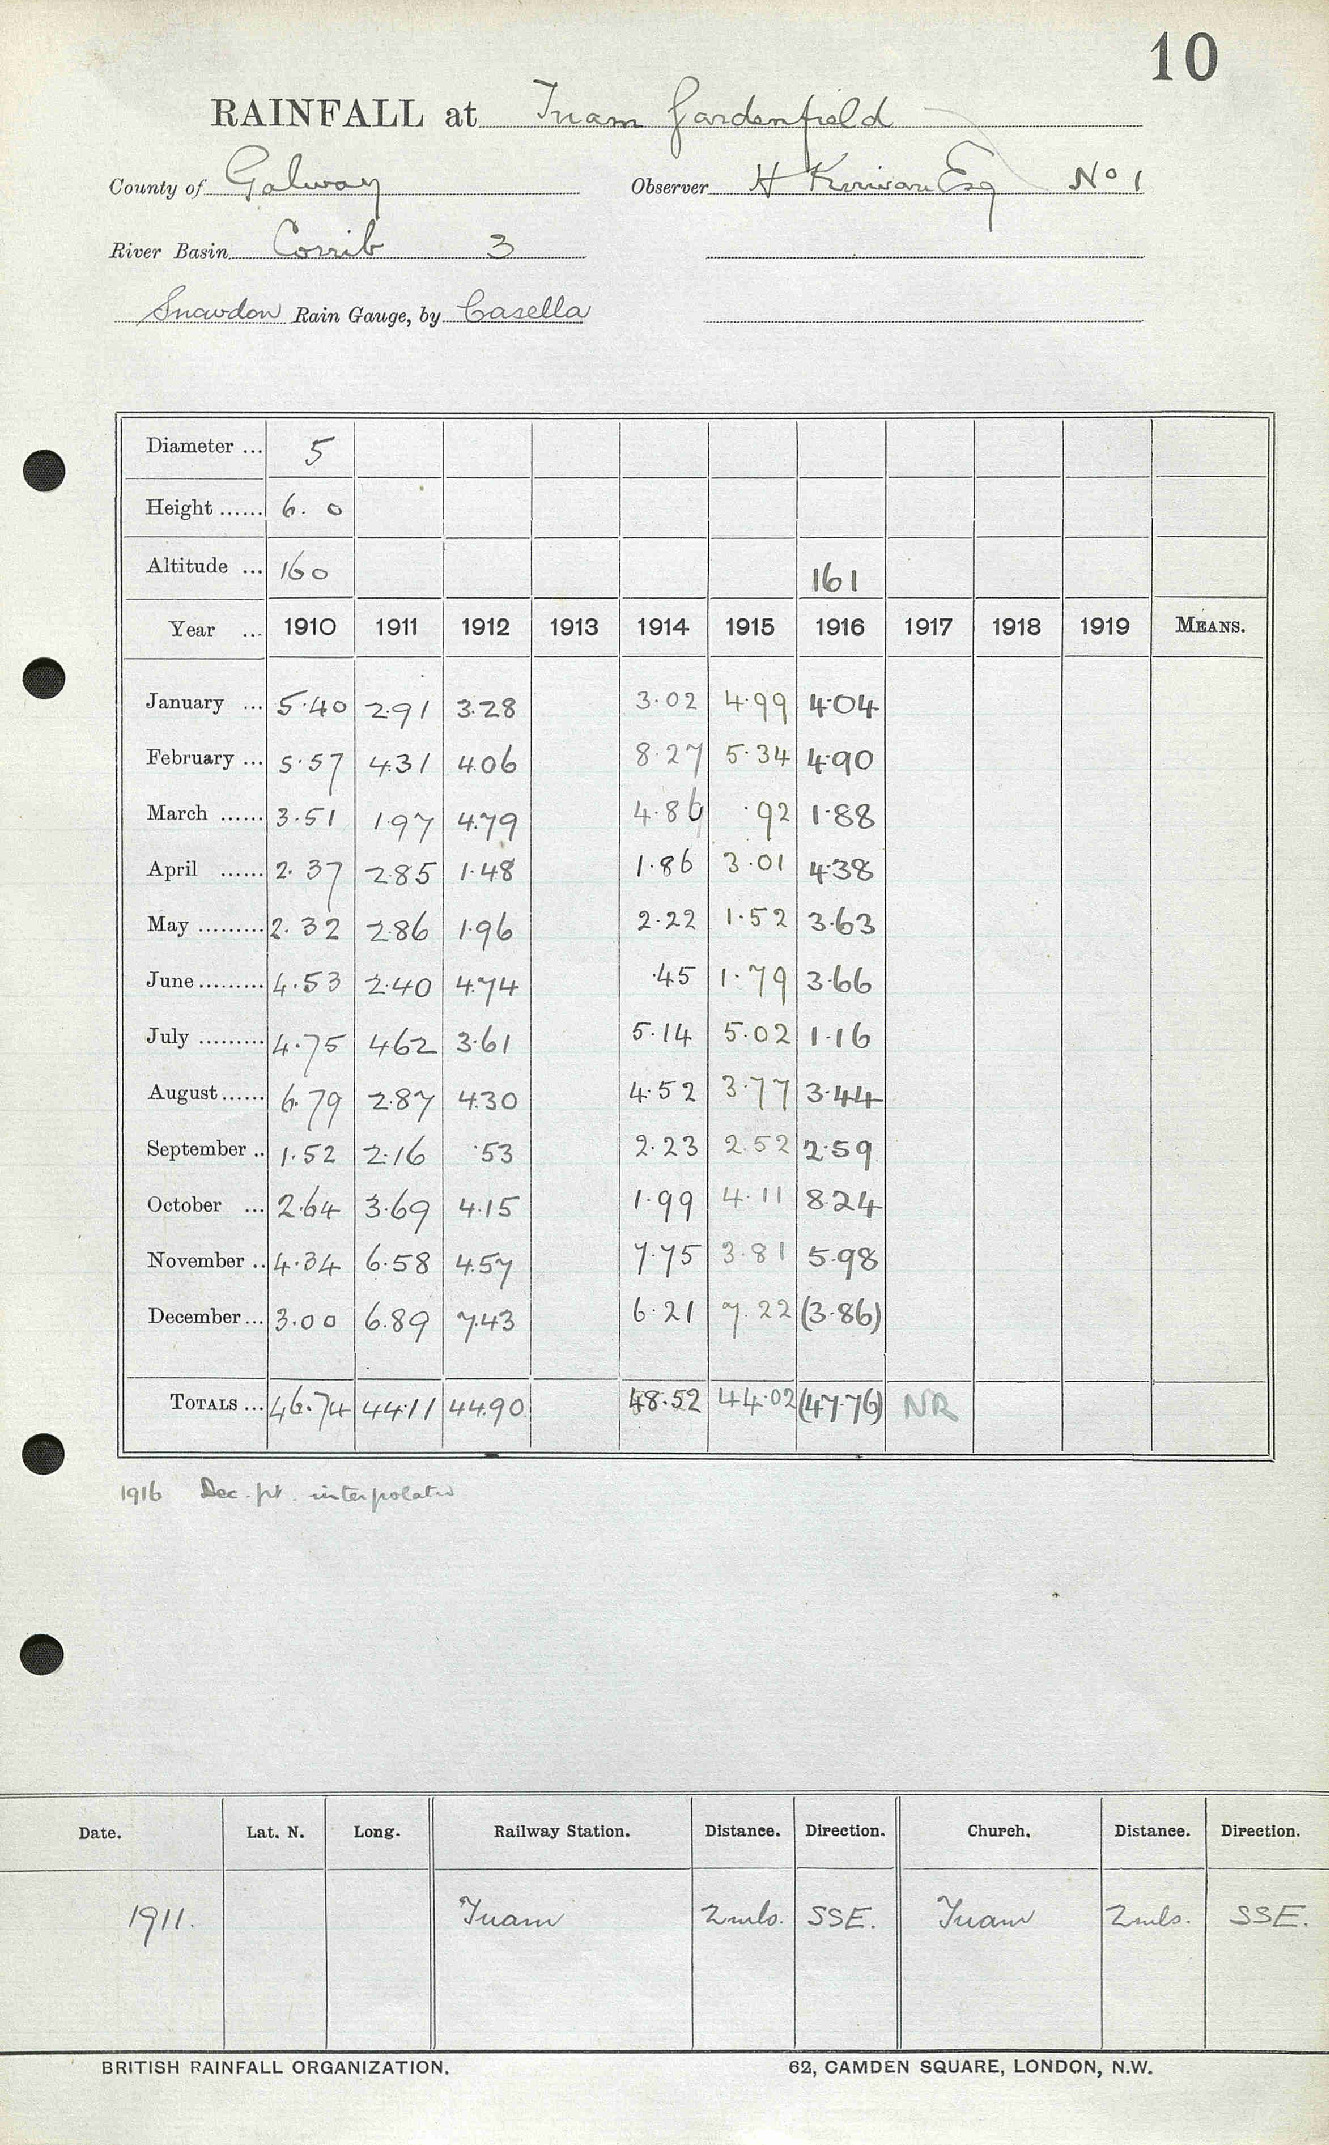 10
RAINFALL at Tuam Gardenfield
County of Galway Observer H Kirwan Esq No 1
River Basin Corrib 3
Snowdon Rain Gauge, by Casella
Diameter ... 5
Height ...... 6. 0
Altitude ... 160 161
Year ... 1910 1911 1912 1913 1914 1915 1916 1917 1918 1919 MEANS.
January ... 5.40 2.91 3.28 3.02 4.99 4.04
February ... 5.57 4.31 4.06 8.27 5.34 4.90
March ...... 3.51 1.97 4.79 4.86 .92 1.88
April ...... 2.37 2.85 1.48 1.86 3.01 4.38
May ......... 2.32 2.86 1.96 2.22 1.52 3.63
June ......... 4.53 2.40 4.74 .45 1.79 3.66
July ......... 4.75 4.62 3.61 5.14 5.02 1.16
August ...... 6.79 2.87 4.30 4.52 3.77 3.44
September .. 1.52 2.16 .53 2.23 2.52 2.59
October ... 2.64 3.69 4.15 1.99 4.11 8.24
November .. 4.34 6.58 4.57 7.75 3.81 5.98
December ... 3.00 6.89 7.43 6.21 7.22 (3.86)
TOTALS ... 46.74 44.11 44.90 48.52 44.02 (47.76) NR
1916 Dec. pt. interpolated
Date. Lat. N. Long. Railway Station. Distance. Direction. Church. Distance. Direction.
1911. Tuam 2 mls. SSE. Tuam 2 mls. SSE.
BRITISH RAINFALL ORGANIZATION. 62, CAMDEN SQUARE, LONDON, N.W.